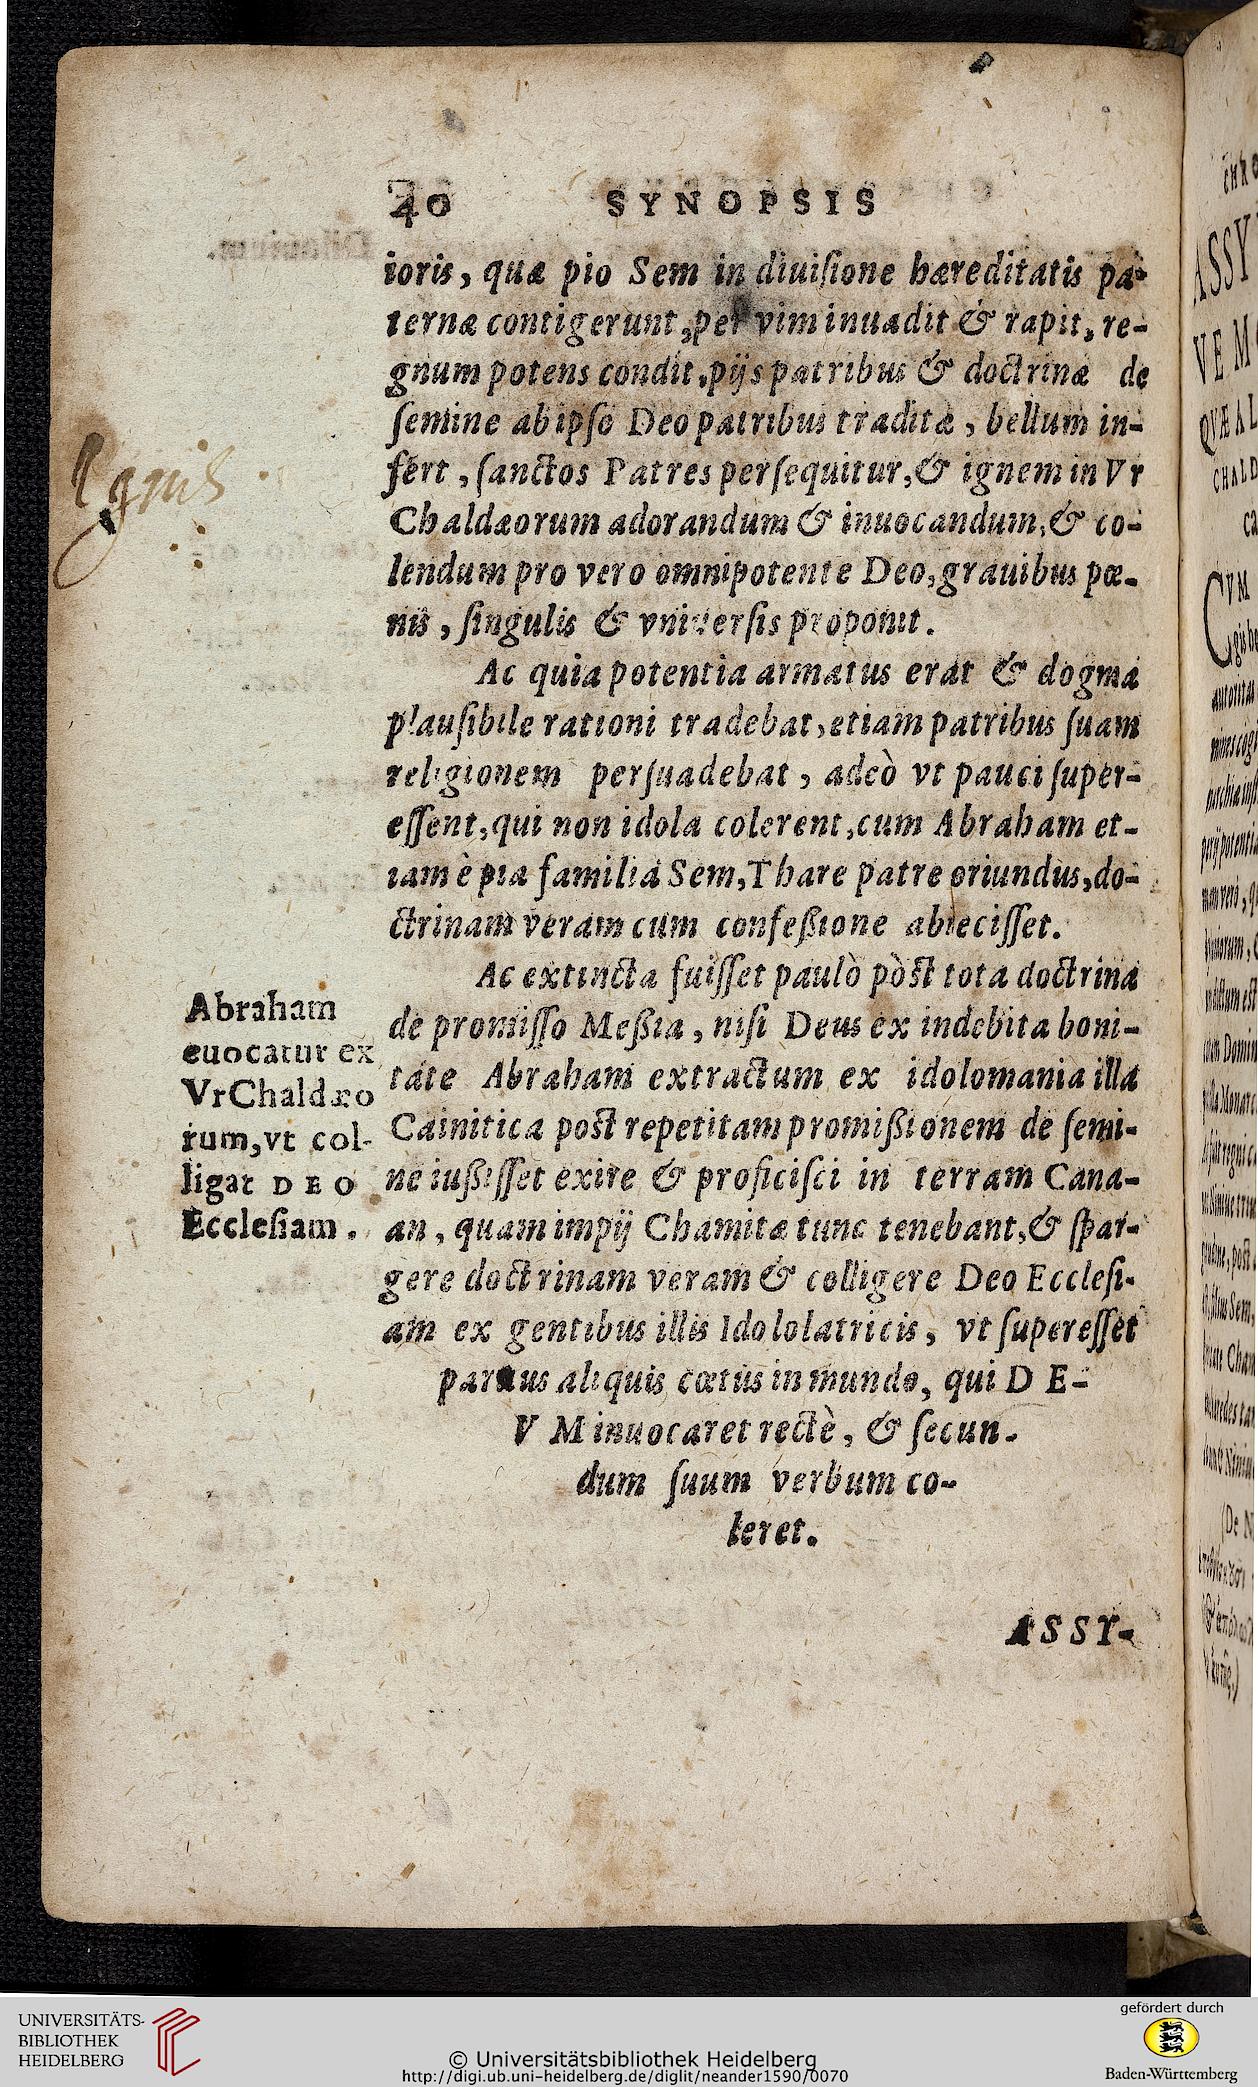 40 SYNOPSIS
ioris, quæ pio Sem in diuiſione hæreditatis pa-
ternæ contigerunt, per vim inuadit & rapit, re-
gnum potens condit, pijs patribus & doctrinæ de
ſemine ab ipſo Deo patribus traditæ, bellum in-
fert, ſanctos Patres perſequitur, & ignem in Vr
Ignis
Chaldæorum adorandum & inuocandum, & co-
lendum pro vero omnipotente Deo, grauibus pœ-
nis, ſingulis & vniuerſis proponit.
Ac quia potentia armatus erat & dogma
plauſibile rationi tradebat, etiam patribus ſuam
religionem perſuadebat, adeò vt pauci ſuper-
eſſent, qui non idola colerent, cum Abraham et-
iam è pia familia Sem, Thare patre oriundus, do-
ctrinam veram cum confeßione abieciſſet.
Ac extincta fuiſſet paulò pòst tota doctrina
de promiſſo Meßia, niſi Deus ex indebita boni-
tate Abraham extractum ex idolomania illa
Cainitica post repetitam promißionem de ſemi-
ne iußiſſet exire & proficiſci in terram Cana-
an, quam impij Chamitæ tunc tenebant, & ſpar-
gere doctrinam veram & colligere Deo Eccleſi-
am ex gentibus illis Idololatricis, vt ſupereſſet
paruus aliquis cœtus in mundo, qui DE-
VM inuocaret rectè, & ſecun-
dum ſuum verbum co-
leret.
Abraham
euocatur ex
Vr Chaldæo
rum, vt col-
ligat DEO
Eccleſiam.
ASSY-
UNIVERSITÄTS-
BIBLIOTHEK
HEIDELBERG
© Universitätsbibliothek Heidelberg
http://digi.ub.uni-heidelberg.de/diglit/neander1590/0070
gefördert durch
Baden-Württemberg